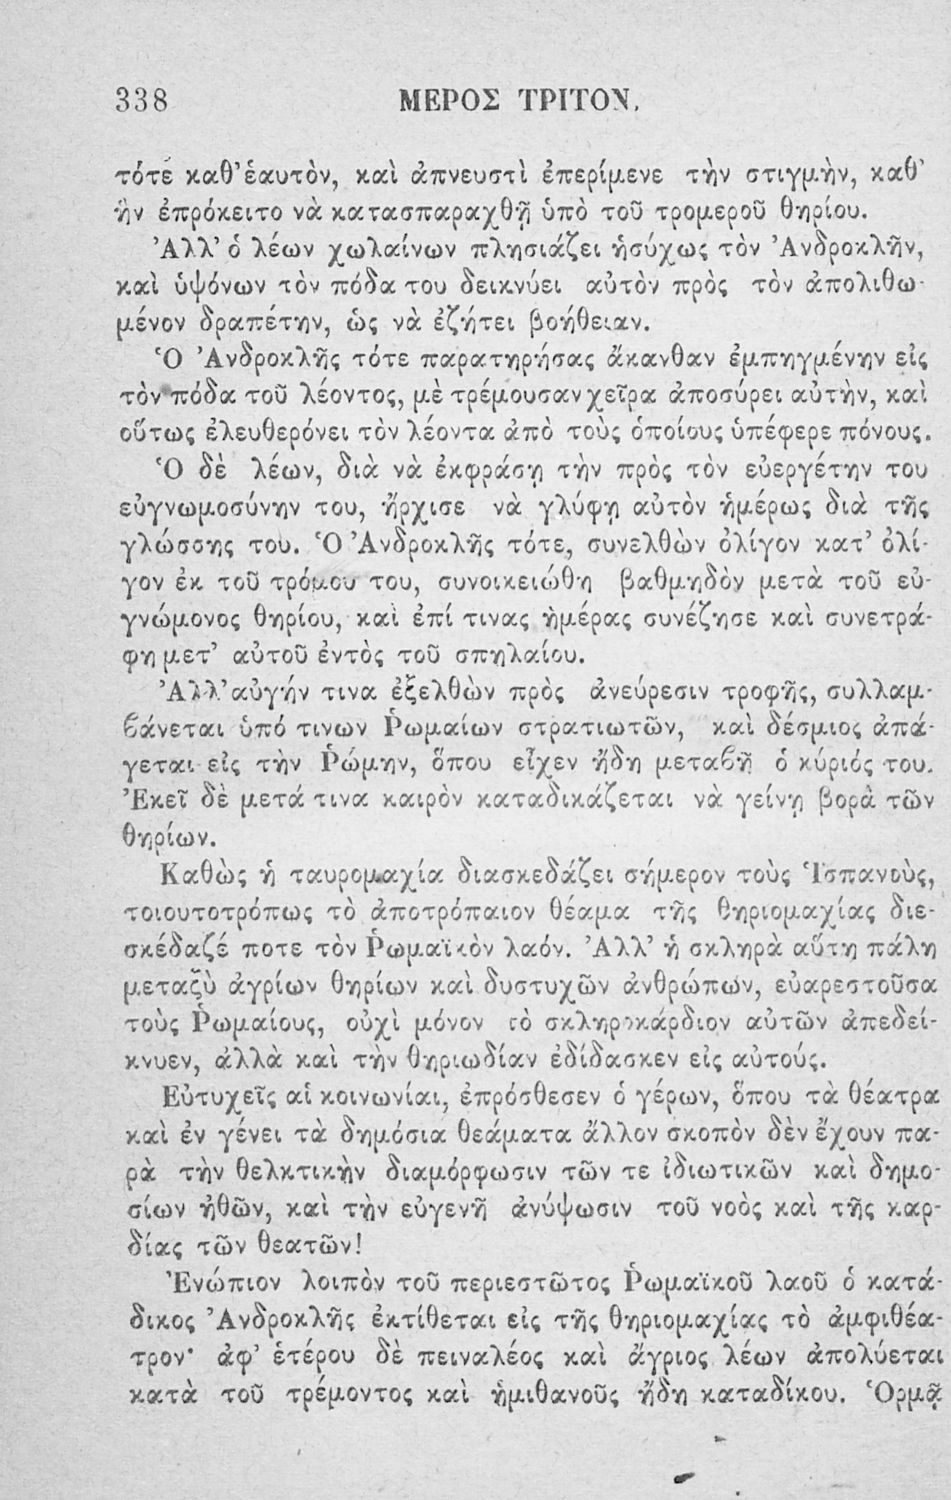 338 ΜΕΡΟΣ ΤΡΙΤΟΝ.
τότε καθ’ἑαυτὸν, καὶ ἀπνευστὶ ἐπερίμενε τὴν στιγμὴν, καθ’
ἣν ἐπρόκειτο νὰ κατασπαραχθῇ ὑπὸ τοῦ τρομεροῦ θηρίου.
Ἀλλ’ ὁ λέων χωλαίνων πλησιάζει ἡσύχως τὸν Ἀνδροκλῆν,
καὶ ὑψόνων τὸν πόδα του δεικνύει αὐτὸν πρὸς τὸν ἀπολιθω-
μένον δραπέτην, ὡς νὰ ἐζήτει βοήθειαν.
Ὁ Ἀνδροκλῆς τότε παρατηρήσας ἄκανθαν ἐμπηγμένην εἰς
τὸν πόδα τοῦ λέοντος, μὲ τρέμουσαν χεῖρα ἀποσύρει αὐτὴν, καὶ
οὕτως ἐλευθερόνει τὸν λέοντα ἀπὸ τοὺς ὁποίους ὑπέφερε πόνους.
Ὁ δὲ λέων, διὰ νὰ ἐκφράσῃ τὴν πρὸς τὸν εὐεργέτην του
εὐγνωμοσύνην του, ἤρχισε νὰ γλύφῃ αὐτὸν ἡμέρως διὰ τῆς
γλώσσης του. Ὁ Ἀνδροκλῆς τότε, συνελθὼν ὀλίγον κατ’ ὀλί-
γον ἐκ τοῦ τρόμου του, συνοικειώθη βαθμηδὸν μετὰ τοῦ εὐ-
γνώμονος θηρίου, καὶ ἐπί τινας ἡμέρας συνέζησε καὶ συνετρά-
φη μετ’ αὐτοῦ ἐντὸς τοῦ σπηλαίου.
Ἀλλ’ αὐγήν τινα ἐξελθὼν πρὸς ἀνεύρεσιν τροφῆς, συλλαμ-
βάνεται ὑπό τινων Ῥωμαίων στρατιωτῶν, καὶ δέσμιος ἀπά-
γεται εἰς τὴν Ῥώμην, ὅπου εἶχεν ἤδη μεταβῆ ὁ κύριός του.
Ἐκεῖ δὲ μετά τινα καιρὸν καταδικάζεται νὰ γείνῃ βορὰ τῶν
θηρίων.
Καθὼς ἡ ταυρομαχία διασκεδάζει σήμερον τοὺς Ἱσπανοὺς,
τοιουτοτρόπως τὸ ἀποτρόπαιον θέαμα τῆς θηριομαχίας διε-
σκέδαζέ ποτε τὸν Ῥωμαϊκὸν λαόν. Ἀλλ’ ἡ σκληρὰ αὕτη πάλη
μεταξὺ ἀγρίων θηρίων καὶ δυστυχῶν ἀνθρώπων, εὐαρεστοῦσα
τοὺς Ῥωμαίους, οὐχὶ μόνον τὸ σκληροκάρδιον αὐτῶν ἀπεδεί-
κνυεν, ἀλλὰ καὶ τὴν θηριωδίαν ἐδίδασκεν εἰς αὐτούς.
Εὐτυχεῖς αἱ κοινωνίαι, ἐπρόσθεσεν ὁ γέρων, ὅπου τὰ θέατρα
καὶ ἐν γένει τὰ δημόσια θεάματα ἄλλον σκοπὸν δὲν ἔχουν πα-
ρὰ τὴν θελκτικὴν διαμόρφωσιν τῶν τε ἰδιωτικῶν καὶ δημο-
σίων ἠθῶν, καὶ τὴν εὐγενῆ ἀνύψωσιν τοῦ νοὸς καὶ τῆς καρ-
δίας τῶν θεατῶν!
Ἐνώπιον λοιπὸν τοῦ περιεστῶτος Ῥωμαϊκοῦ λαοῦ ὁ κατά-
δικος Ἀνδροκλῆς ἐκτίθεται εἰς τῆς θηριομαχίας τὸ ἀμφιθέα-
τρον· ἀφ’ ἑτέρου δὲ πειναλέος καὶ ἄγριος λέων ἀπολύεται
κατὰ τοῦ τρέμοντος καὶ ἡμιθανοῦς ἤδη καταδίκου. Ὁρμᾷ